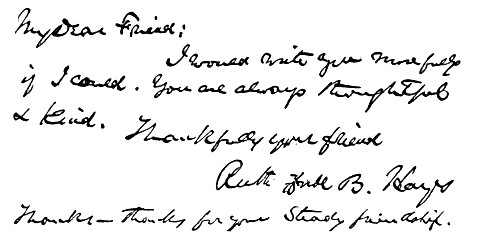 My Dear Friend:
I would write you more fully
if I could. You are always thoughtful
& Kind. Thankfully your friend
B. Hayes
Thanks — thanks for your Steady friendship.